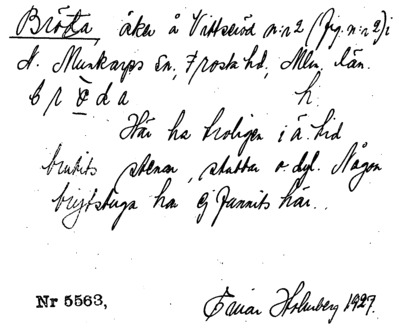 Bröda, åker å Vittseröd n:r 2 (Fig. n:r 2) i
N. Munkarps sn, Frosta hd, Mlm. län.
b r ö d a h.
Här ha troligen i ä. tid
brutits stenar, stubbar o. dyl. Någon
brytstuga har ej funnits här.
Nr 5563, Einar Holmberg 1927.